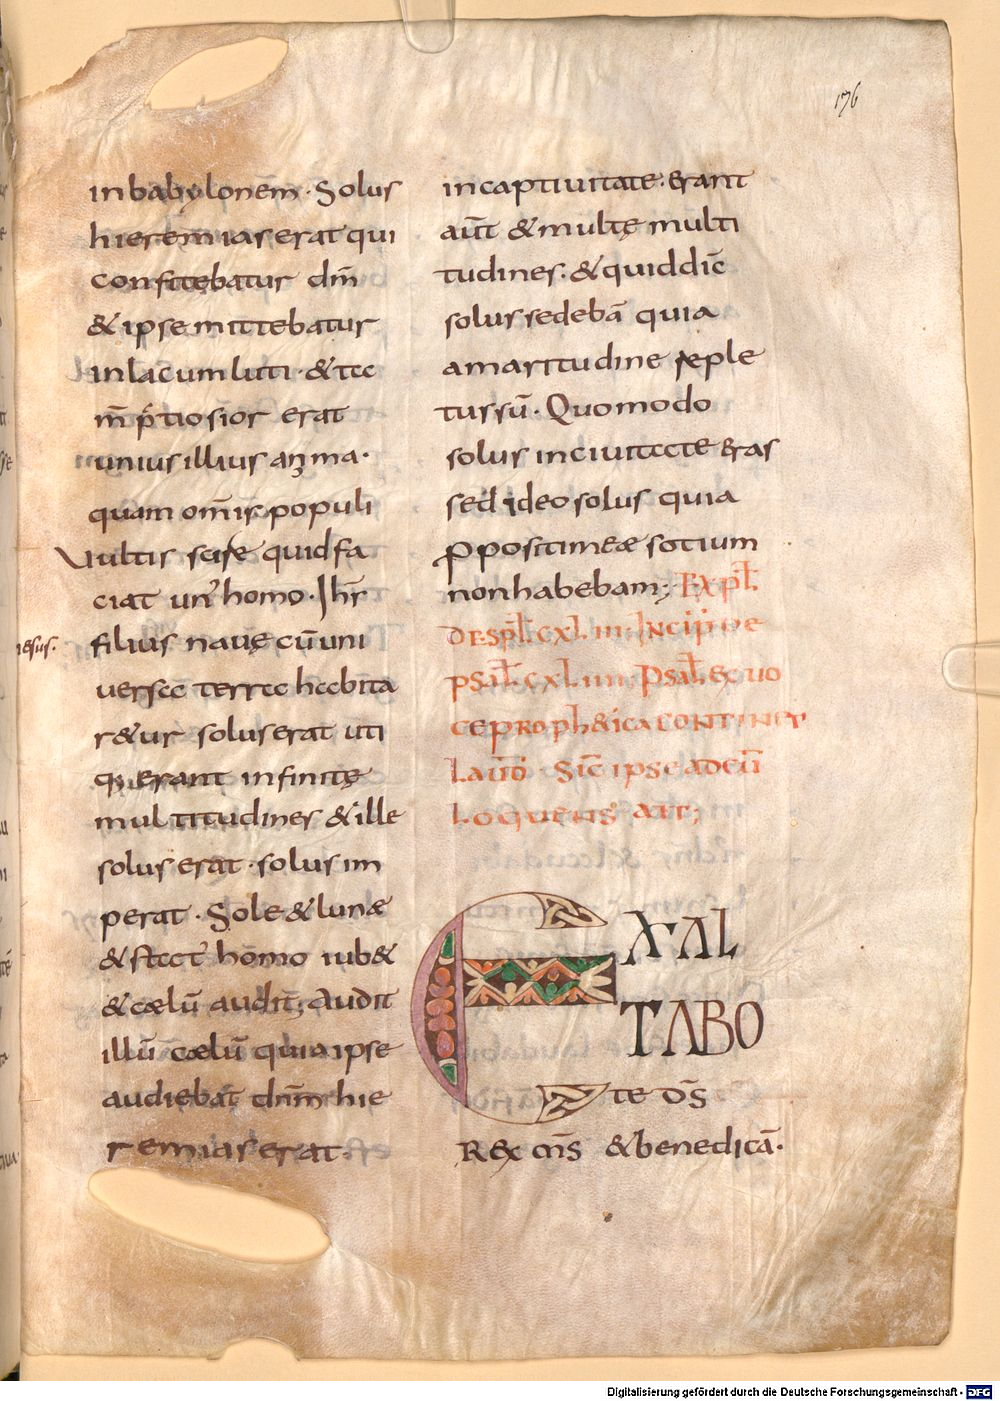 176
in babylonēm · Solus
hieremias erat qui
confitebatur dm̄
& ipse mittebatur
in lacum luti · & tec
m̄ p̄tiosior erat
unius illius anima ·
quam om̄is populi
Vultis scire quid fa
ciat un' homo · Ihs̄
iesus ·
filius naue cū uni
uersee terree heebita
r&ur solus erat uti
q; erant infinitę
multitudines & ille
solus erat · solus im
perat · Sole & lunæ
& steet' homo iub&
& cælū audit; Audit
illū cælū quia ipse
audiebat dnm̄ hie
remias erat ·
in captiuitate · erant
aūt & multę multi
tudines · & quid dic̄
solus sedebā quia
amaritudine reple
tus sū · Quomodo
solus in ciuiteete eras
sed ideo solus quia
ppositi meæ sotium
non habebam; Expl̄
de spl̄ cxliii · Incip de
psal̄ cxliiii · Psal̄ ex uo
ce proph&ica continet
laud̄ · Sic ipse ad eū
loquens ait;
EXAL
TABO
te ds̄
Rex ms̄ & benedicā ·
Digitalisierung gefördert durch die Deutsche Forschungsgemeinschaft - DFG